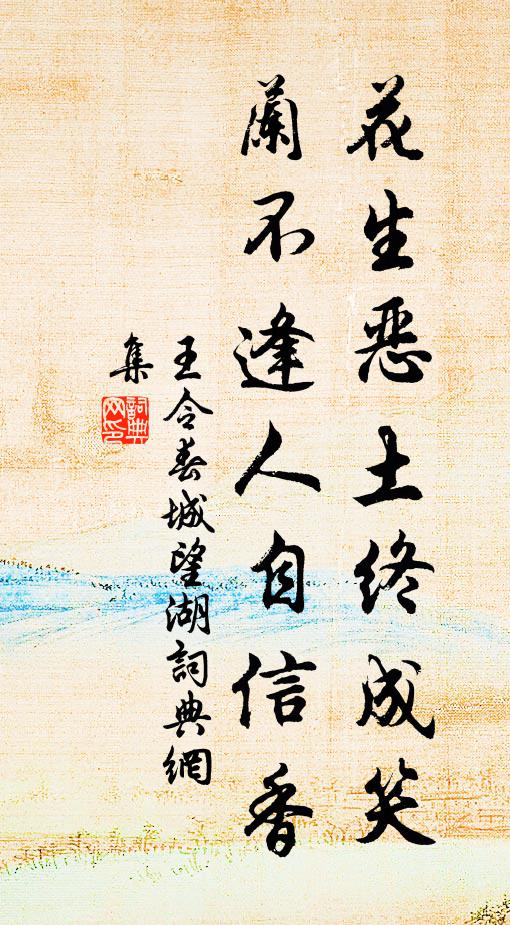 花生恶土终成笑
蘭不逢人自信香
王令春城望湖詞典網
集
詞典
网印